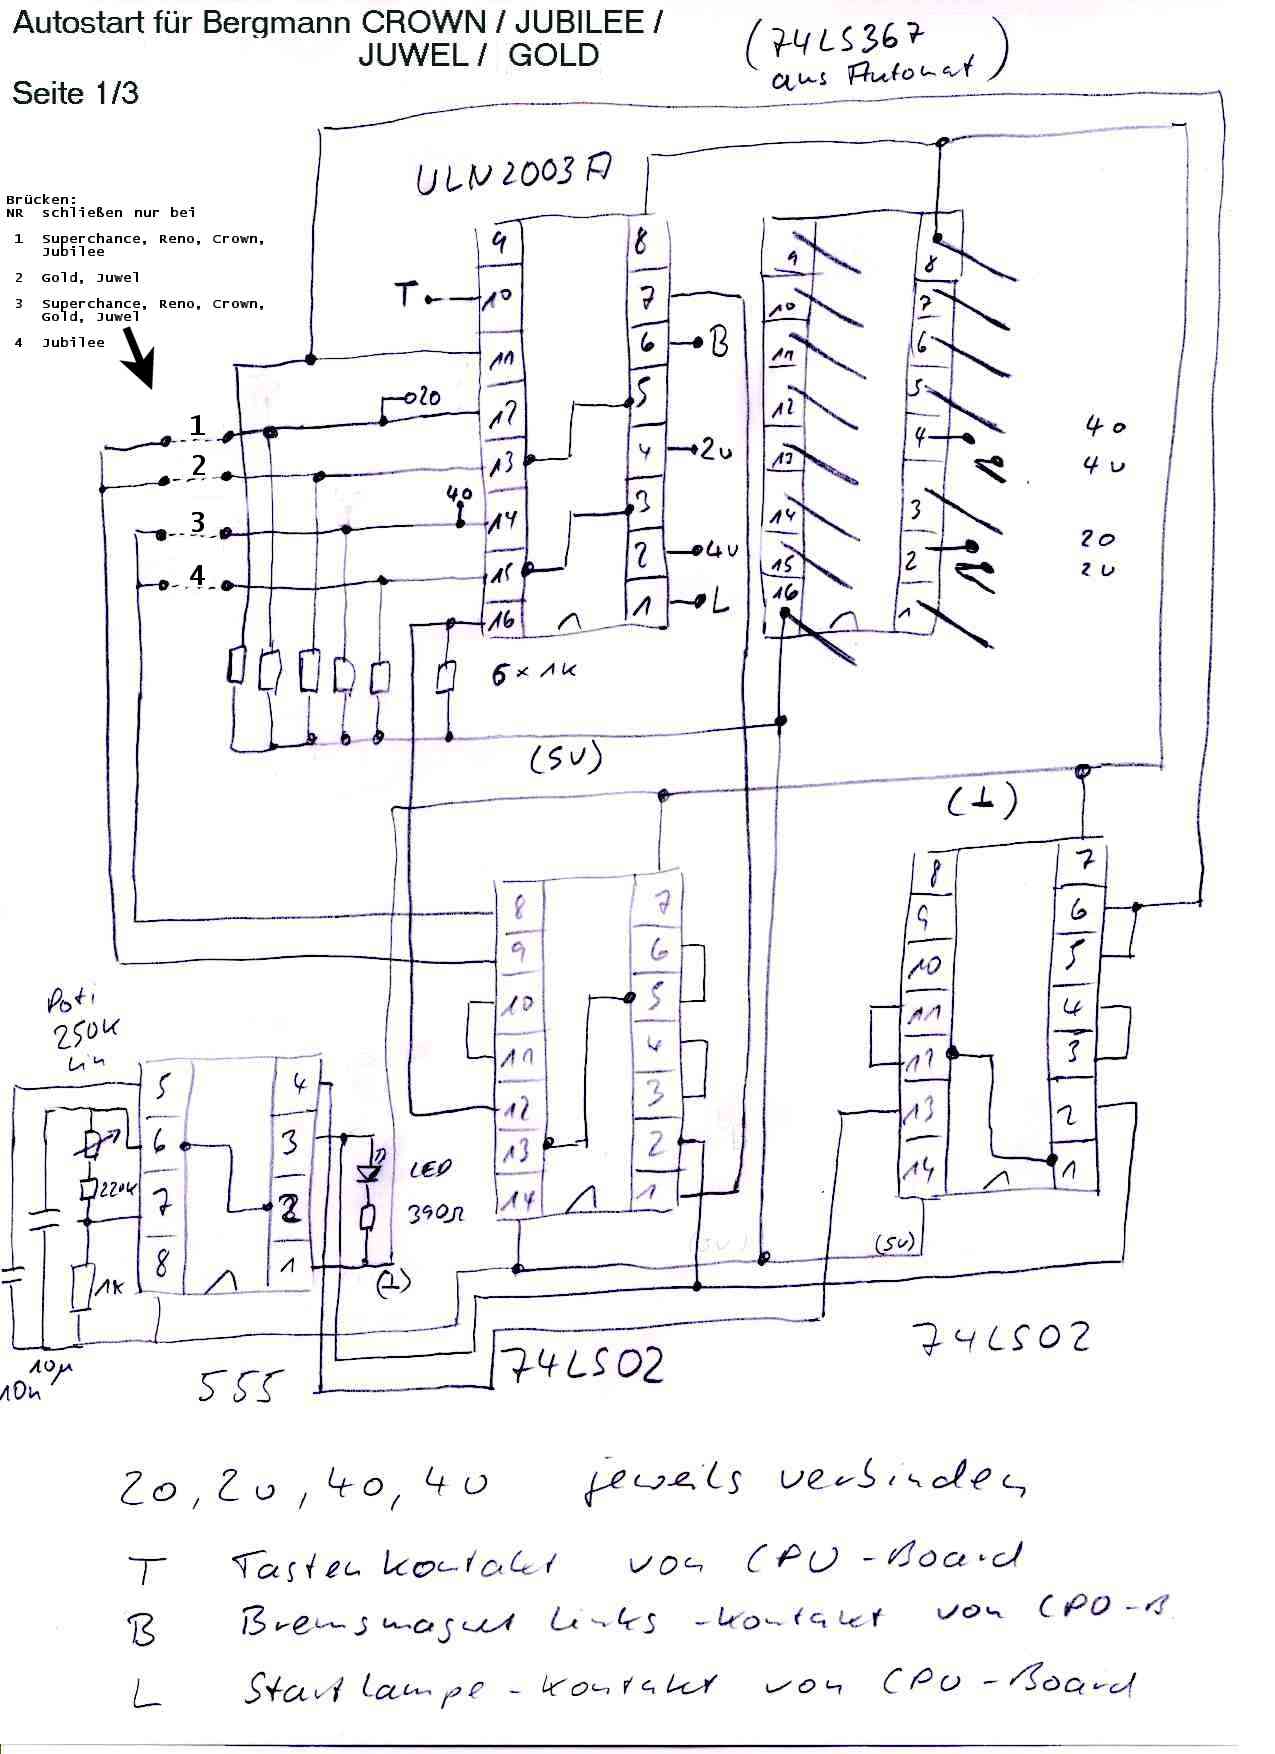 Autostart für Bergmann CROWN / JUBILEE /
JUWEL / GOLD
Seite 1/3
(74LS367
aus Automat)
ULN2003A
Brücken:
NR schließen nur bei
1 Superchance, Reno, Crown,
Jubilee
2 Gold, Juwel
3 Superchance, Reno, Crown,
Gold, Juwel
4 Jubilee
9 8
T 10 7
6 B
11
20 12 5
13 4 2u
40 14 3
15 2 4u
16 1 L
1
2
3
4
9 8
10 7
11 6
12 5
13 4
14 3
15 2
16 1
40
4u
20
2u
6 x 1K
(5V)
(⊥)
8 7
9 6
10 5
11 4
12 3
13 2
14 1
8 7
9 6
10 5
11 4
12 3
13 2
14 1
(5V)
Poti
250K
Lin
5 4
6 3
7 2
8 1
220K
1K
LED
390Ω
(⊥)
10µ
10n
555
74LS02
74LS02
20, 2u, 40, 4u jeweils verbinden
T Tastenkontakt von CPU-Board
B Bremsmagnet Links-Kontakt von CPU-B
L Startlampe-Kontakt von CPU-Board